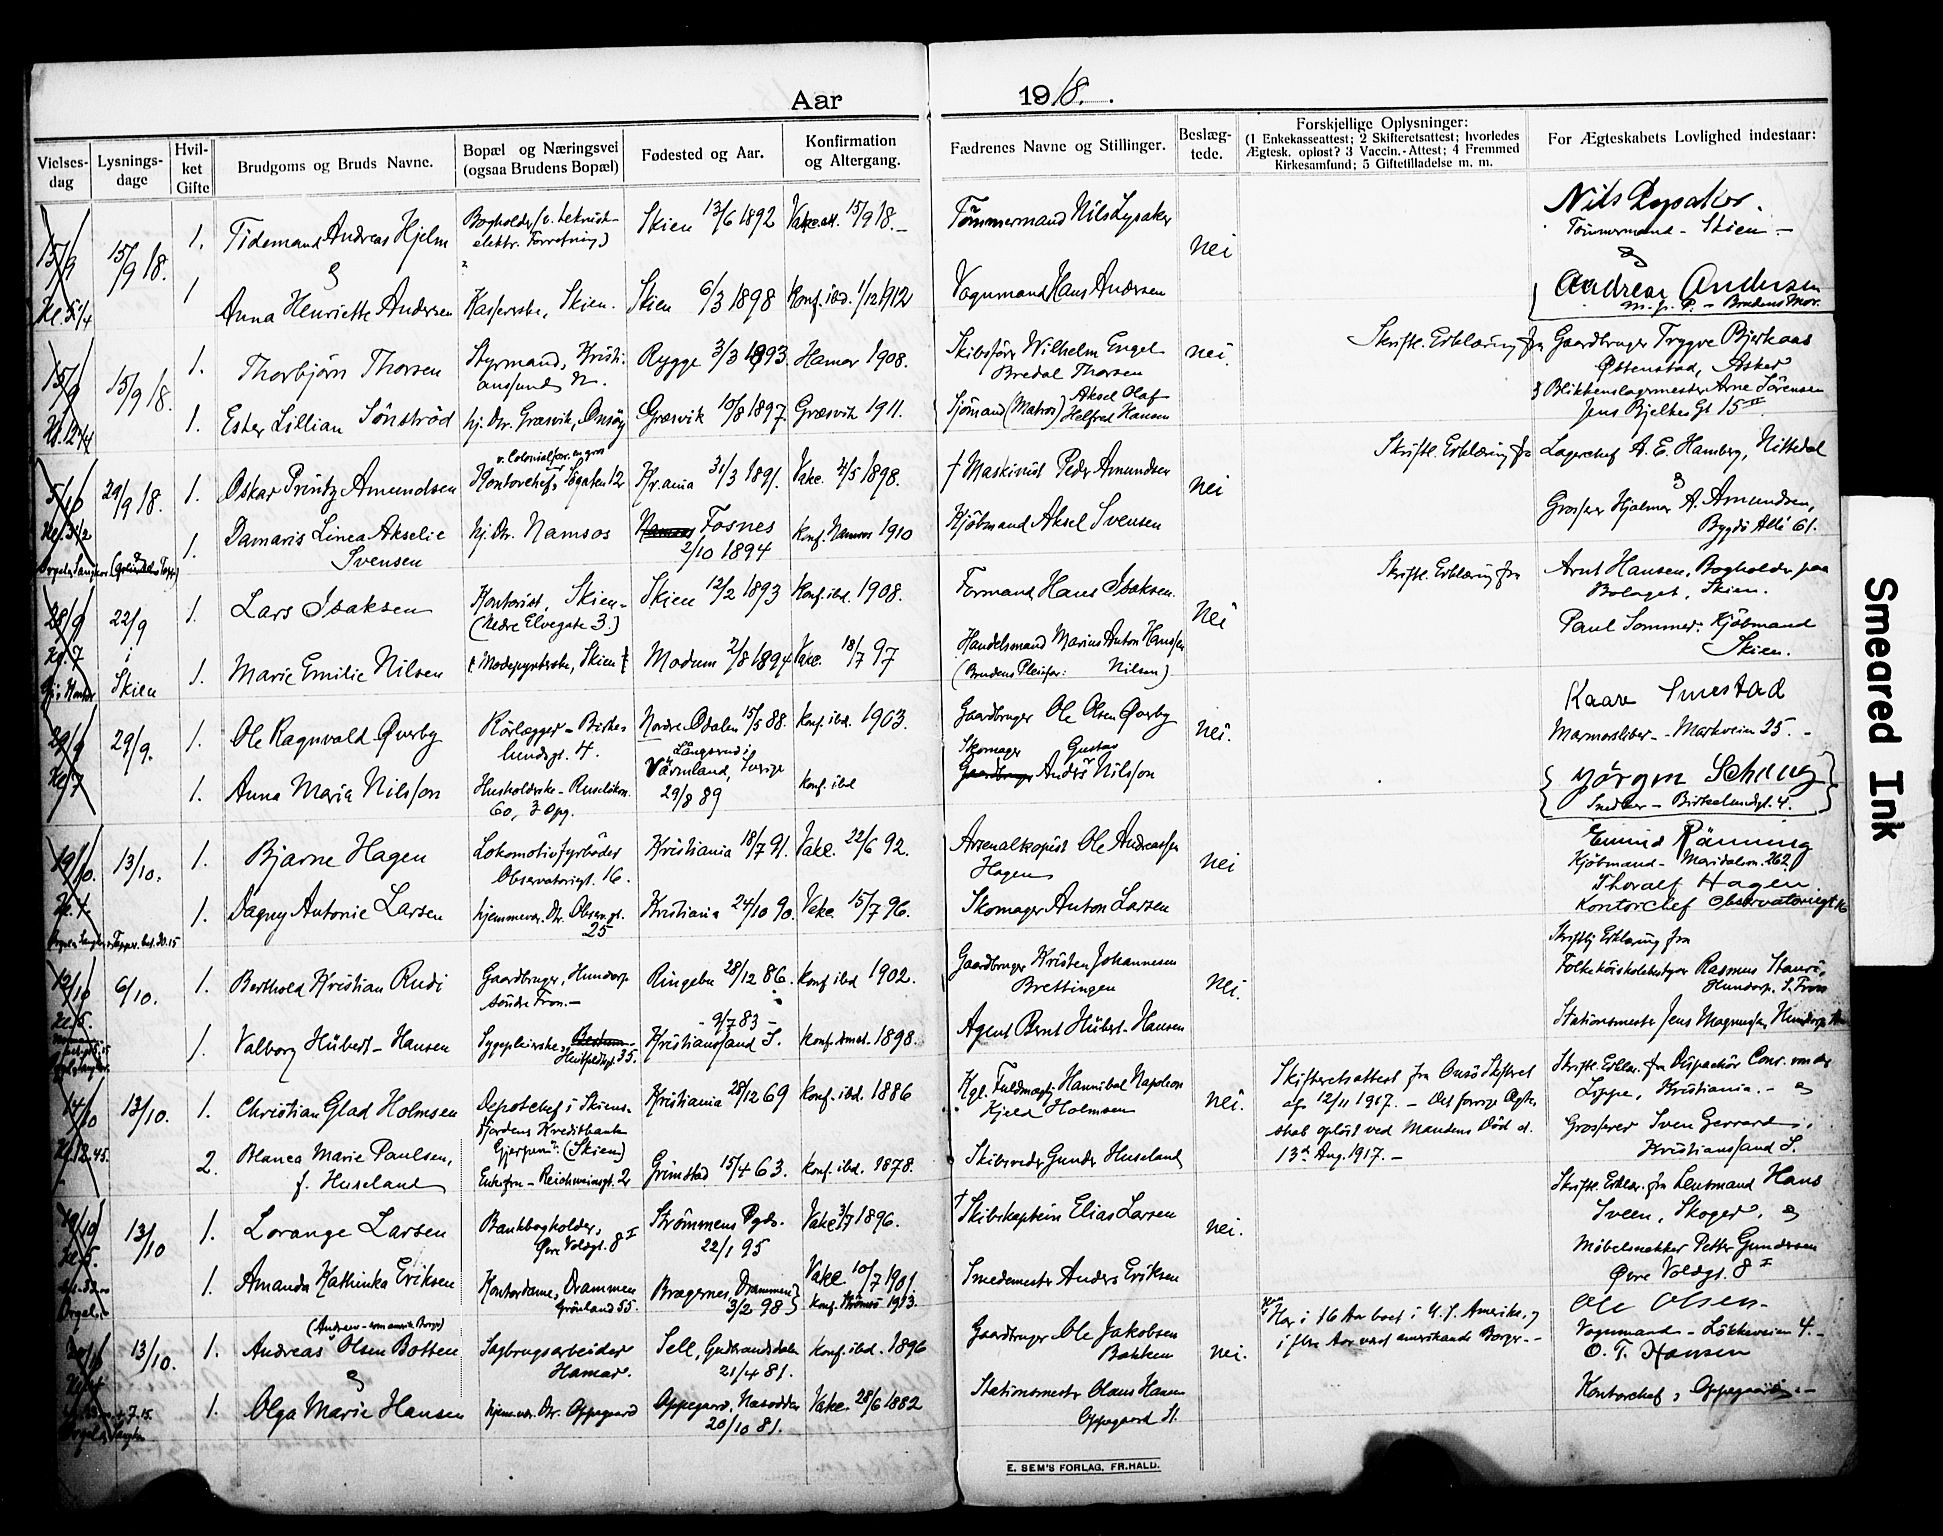 Aar 1918.
Vielses-dag
Lysnings-dage
Hvil-ket Gifte
Brudgoms og Bruds Navne.
Bopæl og Næringsvei (ogsaa Brudens Bopæl)
Fødested og Aar.
Konfirmation og Altergang.
Fædrenes Navne og Stillinger.
Beslæg-tede.
Forskjellige Oplysninger:
(1 Enkekasseattest; 2 Skifteretsattest; hvorledes
Ægtesk. opløst? 3 Vaccin.-Attest; 4 Fremmed
Kirkesamfund; 5 Giftetilladelse m. m.
For Ægteskabets Lovlighed indestaar:
15/9 15/9 18. 1. Tidemand Andreas Hjelm Skien 13/6 1892 15/9 18. Tømmermand Nils Lysaker nei Nils Lysaker.
Tømmermand - Skien -
&
1 Anna Henriette Andersen Kasserske, Skien. Skien 6/3 1898 Konf. ibd. 1/12 1912 Vognmand Hans Andersen Andrea Andersen
Brudens Mor.
15/9 15/9 18. 1. Thorbjörn Thorsen Styrmand, Kristiansund N. Rygge 3/3 1893 Hamar 1908. Skibsförer Wilhelm Engel Bredal Thorsen nei Skriftl. Erklæring fra Gaardbruger Trygve Bjerkaas
Østenstad, Asker
& Blikkenslagermester Arne Sørensen
Jens Bjelkes Gt 15 II
1. Ester Lillian Sönströd hj. Dtr. Græsvik, Onsöy Græsvik 10/8 1897. Græsvik 1911. Sjömand (Matros) Aksel Olaf Helfred Hansen
5/10 29/9 18. 1. Oskar Printz Amundsen Kontorchef, Kr.ania 31/3 1891. Vake. 4/5 1898. † Maskinist Peder Amundsen nei Skriftl. Erklæring fra Lagerchef A. E. Hamberg, Nittedal
&
Grosserer Hjalmar A. Amundsen,
Bygdö Allé 61.
1. Damaris Linea Akselie Svensen hj. Dtr. Namsos Fosnes 2/10 1894 Konf. Namsos 1910 Kjöbmand Aksel Svensen
28/9 22/9 i Skien 1. Lars Isaksen Kontorist, Skien - (Nedre Elvegate 3.) Skien 12/2 1893 Konf. ibd. 1908. Formand Hans Isaksen. Nei Skriftl. Erklæring fra Arnt Hansen, Bogholder paa
Bolaget, Skien.
Paul Sommer: Kjöbmand
Skien.
1. Marie Emilie Nilsen Modepynterske, Skien Modum 2/8 1894 Vake. 18/7 97 Handelsmand Marius Anton Hansen (Brudens Pleiefar: Nilsen)
29/9 29/9. 1. Ole Ragnvald Øverby Rörlægger - Birkelundsgt. 4. Nordre Odalen 15/5 88. Konf. ibd. 1903. Gaardbruger Ole Olsen Øverby nei. Kaare Smestad
Markveien 25. -
Jörgen
Snedker - Birkelundgt. 4.
1. Anna Maria Nilsson Husholderske - Ruselökv. 60, 3 Opg. Långerud i Värmland, Sverige 29/8 89 Konf. ibd Skomager Gustav Anders Nilsson
19/10. 13/10. 1. Bjarne Hagen Lokomotivfyrbøder Observatoriegt. 16. Kristiania 18/7 91. Vake. 22/6 92. Arsenalkopist Ole Andreassen Hagen nei Rönning
Kjöbmand - Maridalsv. 262
Thoralf Hagen
Kontorchef Observatoriegt 16
1. Dagny Antonie Larsen hjemmevær. Dtr. Observ.gt. 25 Kristiania 24/10 90. Vake. 15/7 96. Skomager Anton Larsen
12/10 6/10. 1. Berthold Kristian Rudi Gaardbruger, Hundorp söndre Fron. - Ringebu 28/12 86. Konf ibd 1902. Gaardbruger Kristen Johannesen Brettingen nei. Skriftlig Erklæring fra
Folkehöiskolebestyrer Rasmus Stauri,
Hundorp, S. Fron
Stationsmester Jens Magnussen,
1. Valborg Hübert-Hansen Sygepleierske, Huitfeldtsgt. 35. - 9/7 83 - Kristianssand S. 1898. Agent Bernt Hübert-Hansen
14/10 13/10. 1. Christian Glad Holmsen Depotchef i Skiensfjordens Kreditbank (Skien) Kristiania 28/12 69 Konf. ibd. 1886 Kgl. Fuldmægtig Hannibal Napoleon Kjeld Holmsen nei. Skifteretsattest fra Onsö Skifteret
af 12/11 1917. - Det forrige Ægteskab oplöst ved Mandens Död d.
13de Aug. 1917. -
Skriftl. Erklær. fra Dispachör Conr. von der
Lippe, Kristiania. - &
Grosserer Sven Gerrard i.
Kristianssand S.
2. Blanca Marie Paulsen, f. Huseland Enkefru - Reichweinsgt. 2 Grimstad 15/4 63. Konf. ibd. 1878. Skibsreder Gunder Huseland
19/10 Kl. 5. 13/10 1. Lorange Larsen Bankbogholder, Øvre Voldgt. 8 I Strömmens Pgd. 22/1 95 Vake 3/7 1896. † Skibskaptein Elias Larsen nei. Skriftl. Erklær. fra Lensmand Hans
Sveen, Skoger, &
Möbelsnekker Petter Gundersen
Øvre Voldgt. 8 I
1. Amanda Kathinka Eriksen Kontordame, Drammen Grönland 55. Bragernes, Drammen 3/2 98 Vake 10/7 1901 Konf. Strömsö 1913. Smedemester Anders Eriksen
13/10. 1. Andreas Olsen Botten Sagbrugsarbeider Hamar. Sell, Gudbrandsdalen 21/4 81. Konf. ibd. 1896 Gaardbruger Ole Jakobsen Bakken nei. Har i 16 Aar boet i U. S. Amerika,
i flere Aar været amerikansk Borger. -
Ole Olsen -
Vognmand - Lökkeveien 4. -
O. T. Hansen
Kontorchef, Oppegaard. -
&
1. Olga Marie Hansen hjemvær. Dtr. Oppegaard Oppegaard, Nesodden 20/10 81. Vake. 28/6 1882 Stationsmester Olaus Hansen Oppegaard St.
E. SEM'S FORLAG, FR.HALD.
Smeared Ink